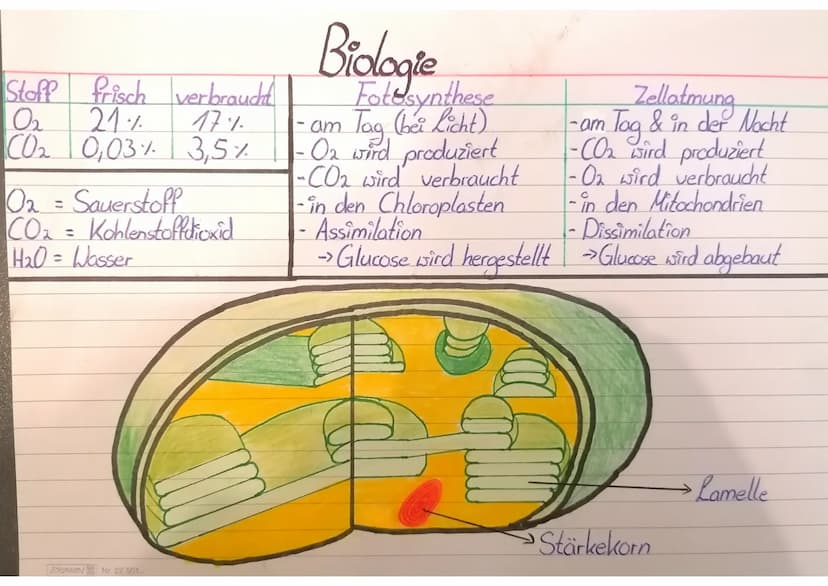 Biologie
Stoff frisch verbraucht
O2 21% 17%
CO2 0,03% 3,5%
O2 = Sauerstoff
CO2 = Kohlenstoffdioxid
H2O = Wasser
Fotosynthese
- am Tag (bei Licht)
- O2 wird produziert
- CO2 wird verbraucht
- in den Chloroplasten
- Assimilation
→ Glucose wird hergestellt
Zellatmung
- am Tag & in der Nacht
- CO2 wird produziert
- O2 wird verbraucht
- in den Mitochondrien
- Dissimilation
→ Glucose wird abgebaut
Lamelle
Stärkekorn